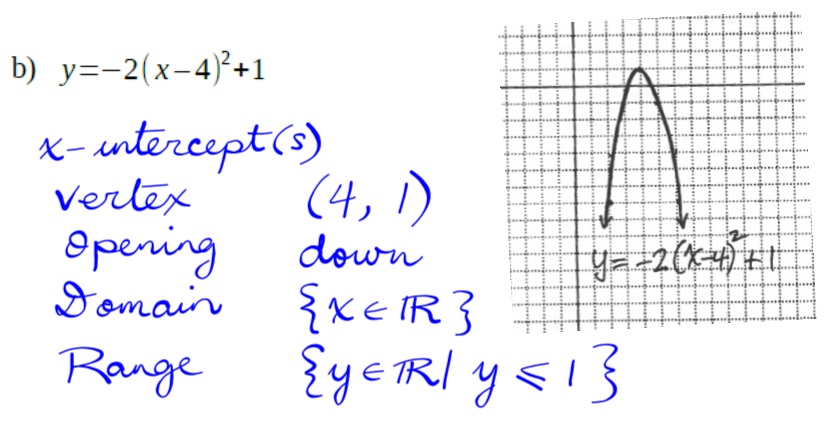 b) y=−2(x−4)²+1
x-intercept(s)
Vertex (4, 1)
Opening down
Domain {x ∈ ℝ}
Range {y ∈ ℝ| y ⩽ 1}
y = -2(x-4)² + 1